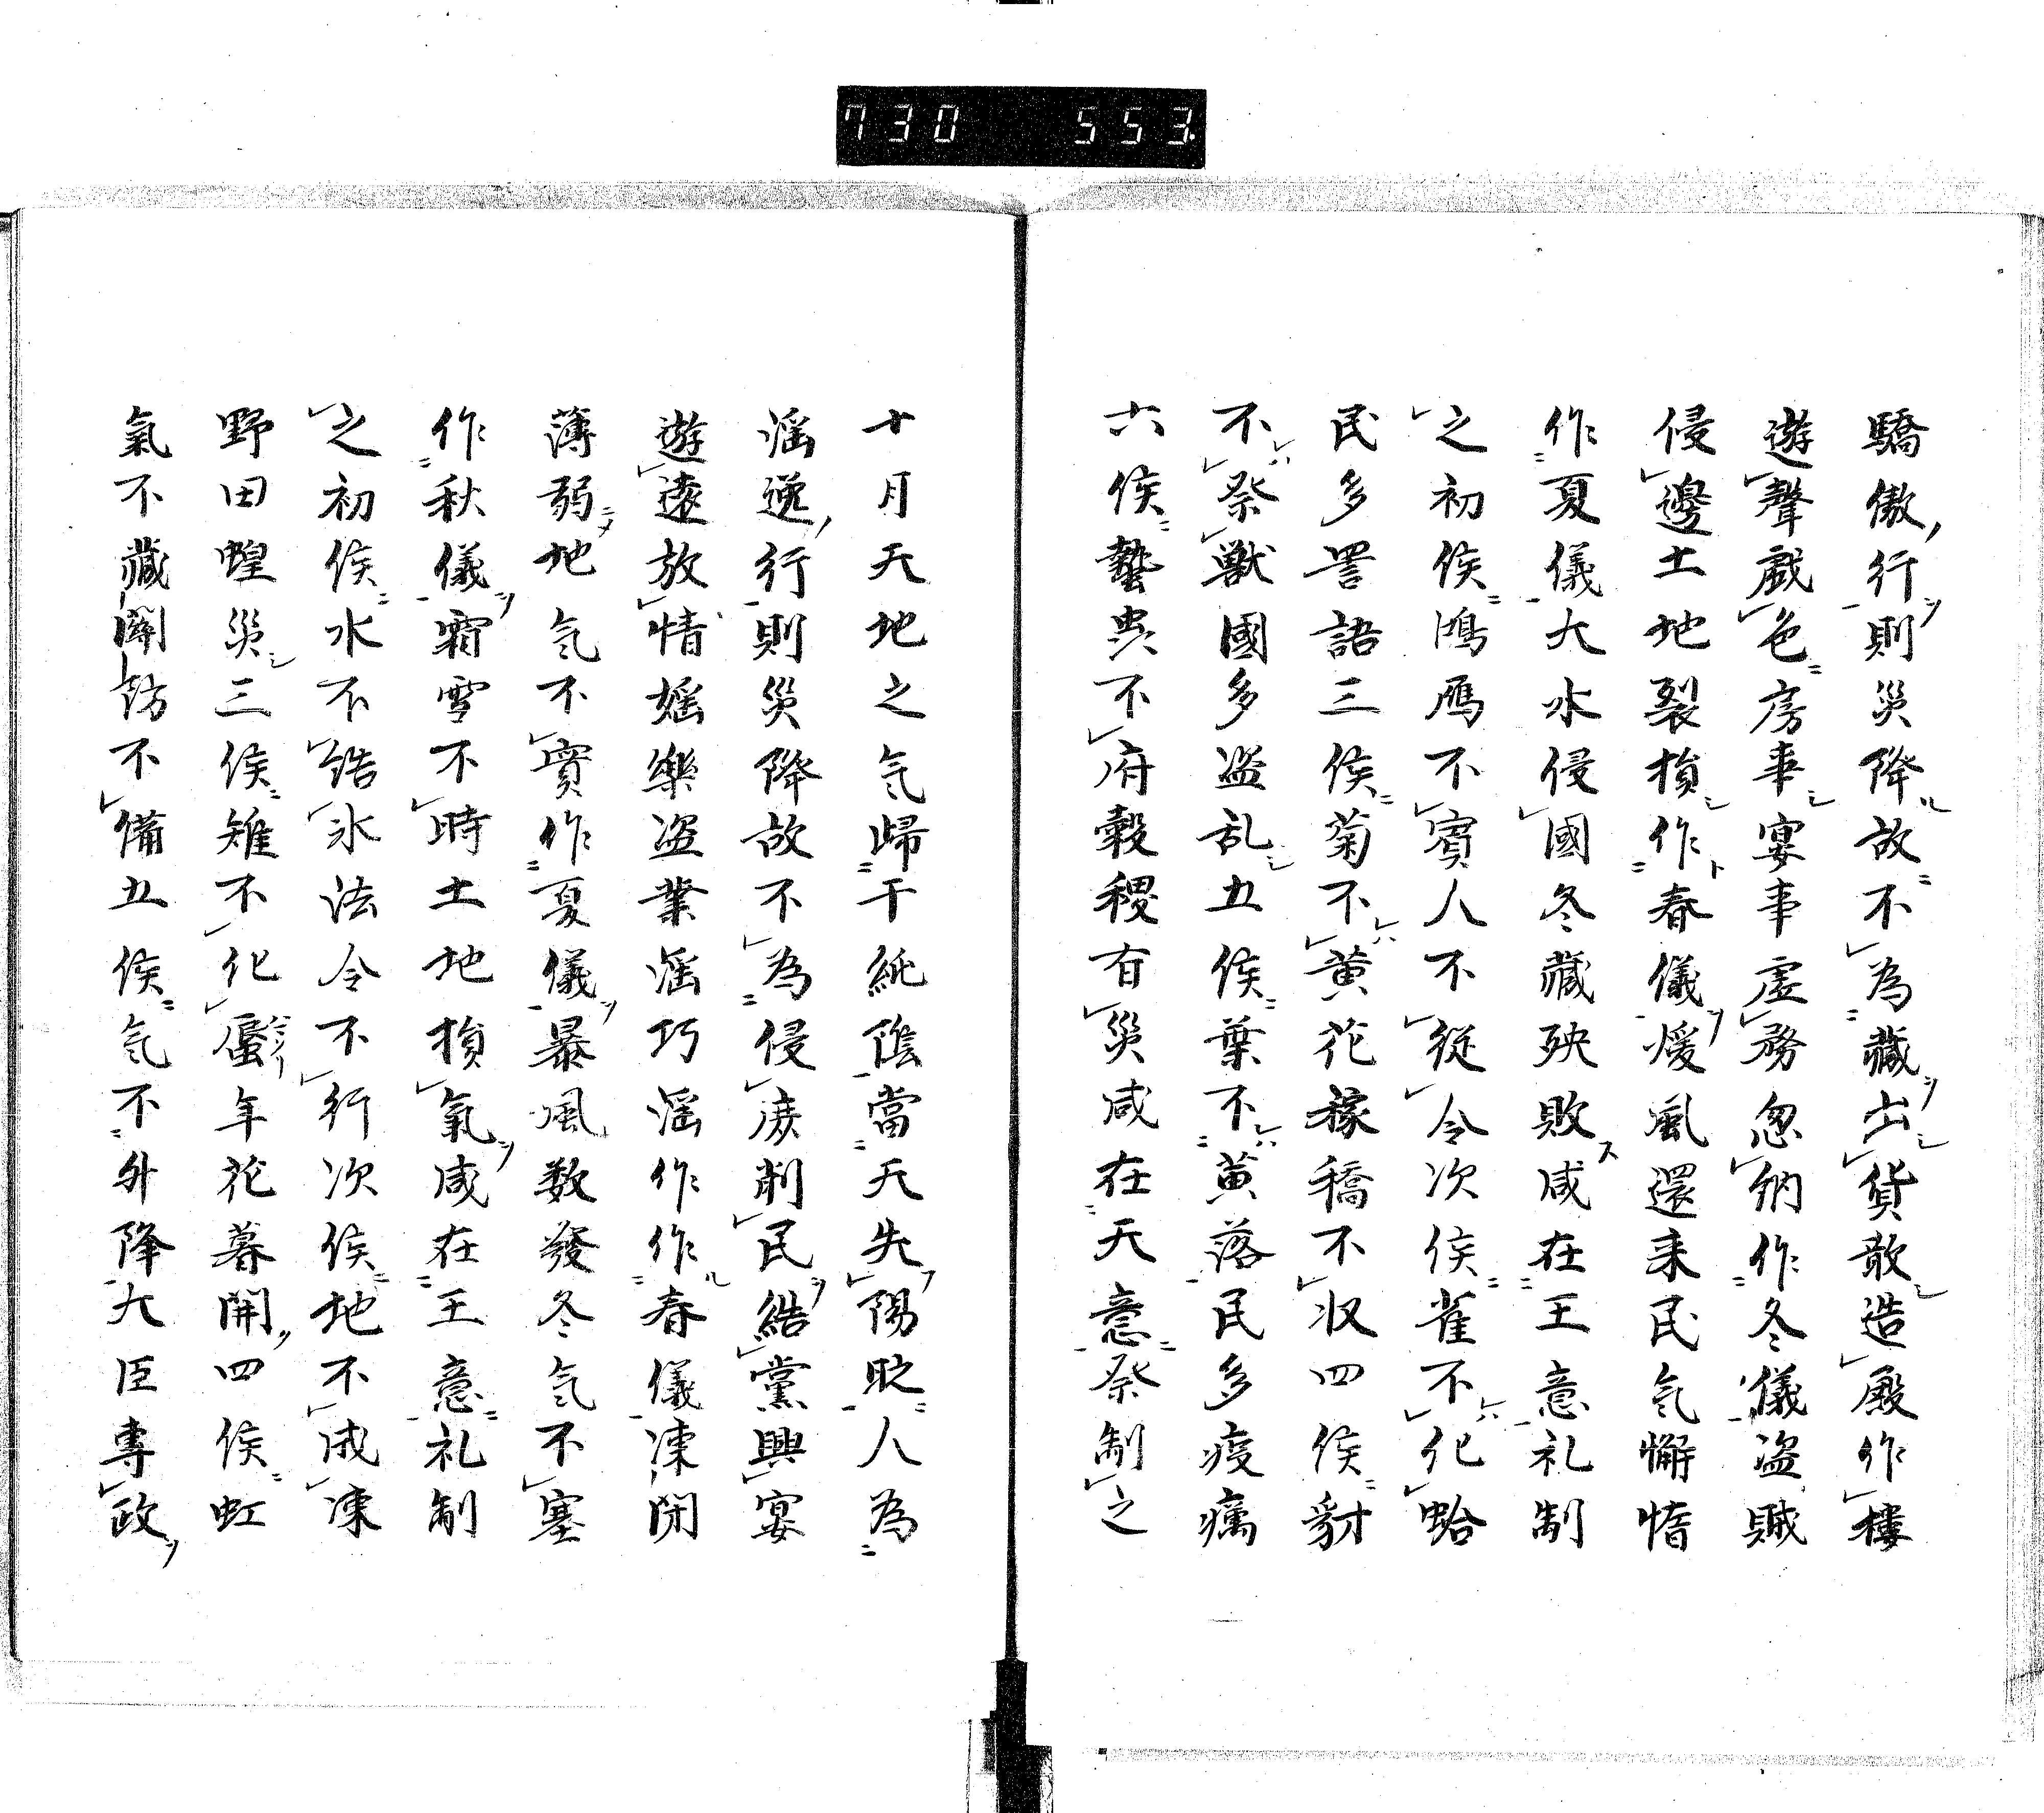 730 553
驕傲行則災降故不為藏出貨敢造殿作樓
遊聲戯色房事宴事虚務忽納作冬儀盗賊
侵邊土地裂損作春儀煖風還来民氣懈惰
作夏儀大水侵國冬藏殃敗咸在王意礼制
之初侯鴻鴈不賓人不從令次侯雀不化蛤
民多詈語三侯菊不黄花稼穡不収四侯豺
不祭獣國多盗乱五侯葉不黄落民多疫癘
六侯蟄虫不府穀稷有災咸在天意祭制之
十月天地之氣歸干純陰當天失陽貶人為
滛逸行則災降故不為侵庶削民結黨興宴
遊遠放情婬樂盗業滛巧滛作作春儀凍閇
薄弱地氣不實作夏儀暴風数發冬氣不塞
作秋儀霜雪不時土地損氣咸在王意礼制
之初侯水不結氷法令不行次侯地不成凍
野田蝗災三侯雉不化蜃年花暮開四侯虹
氣不藏關防不備五侯氣不升降大臣專政